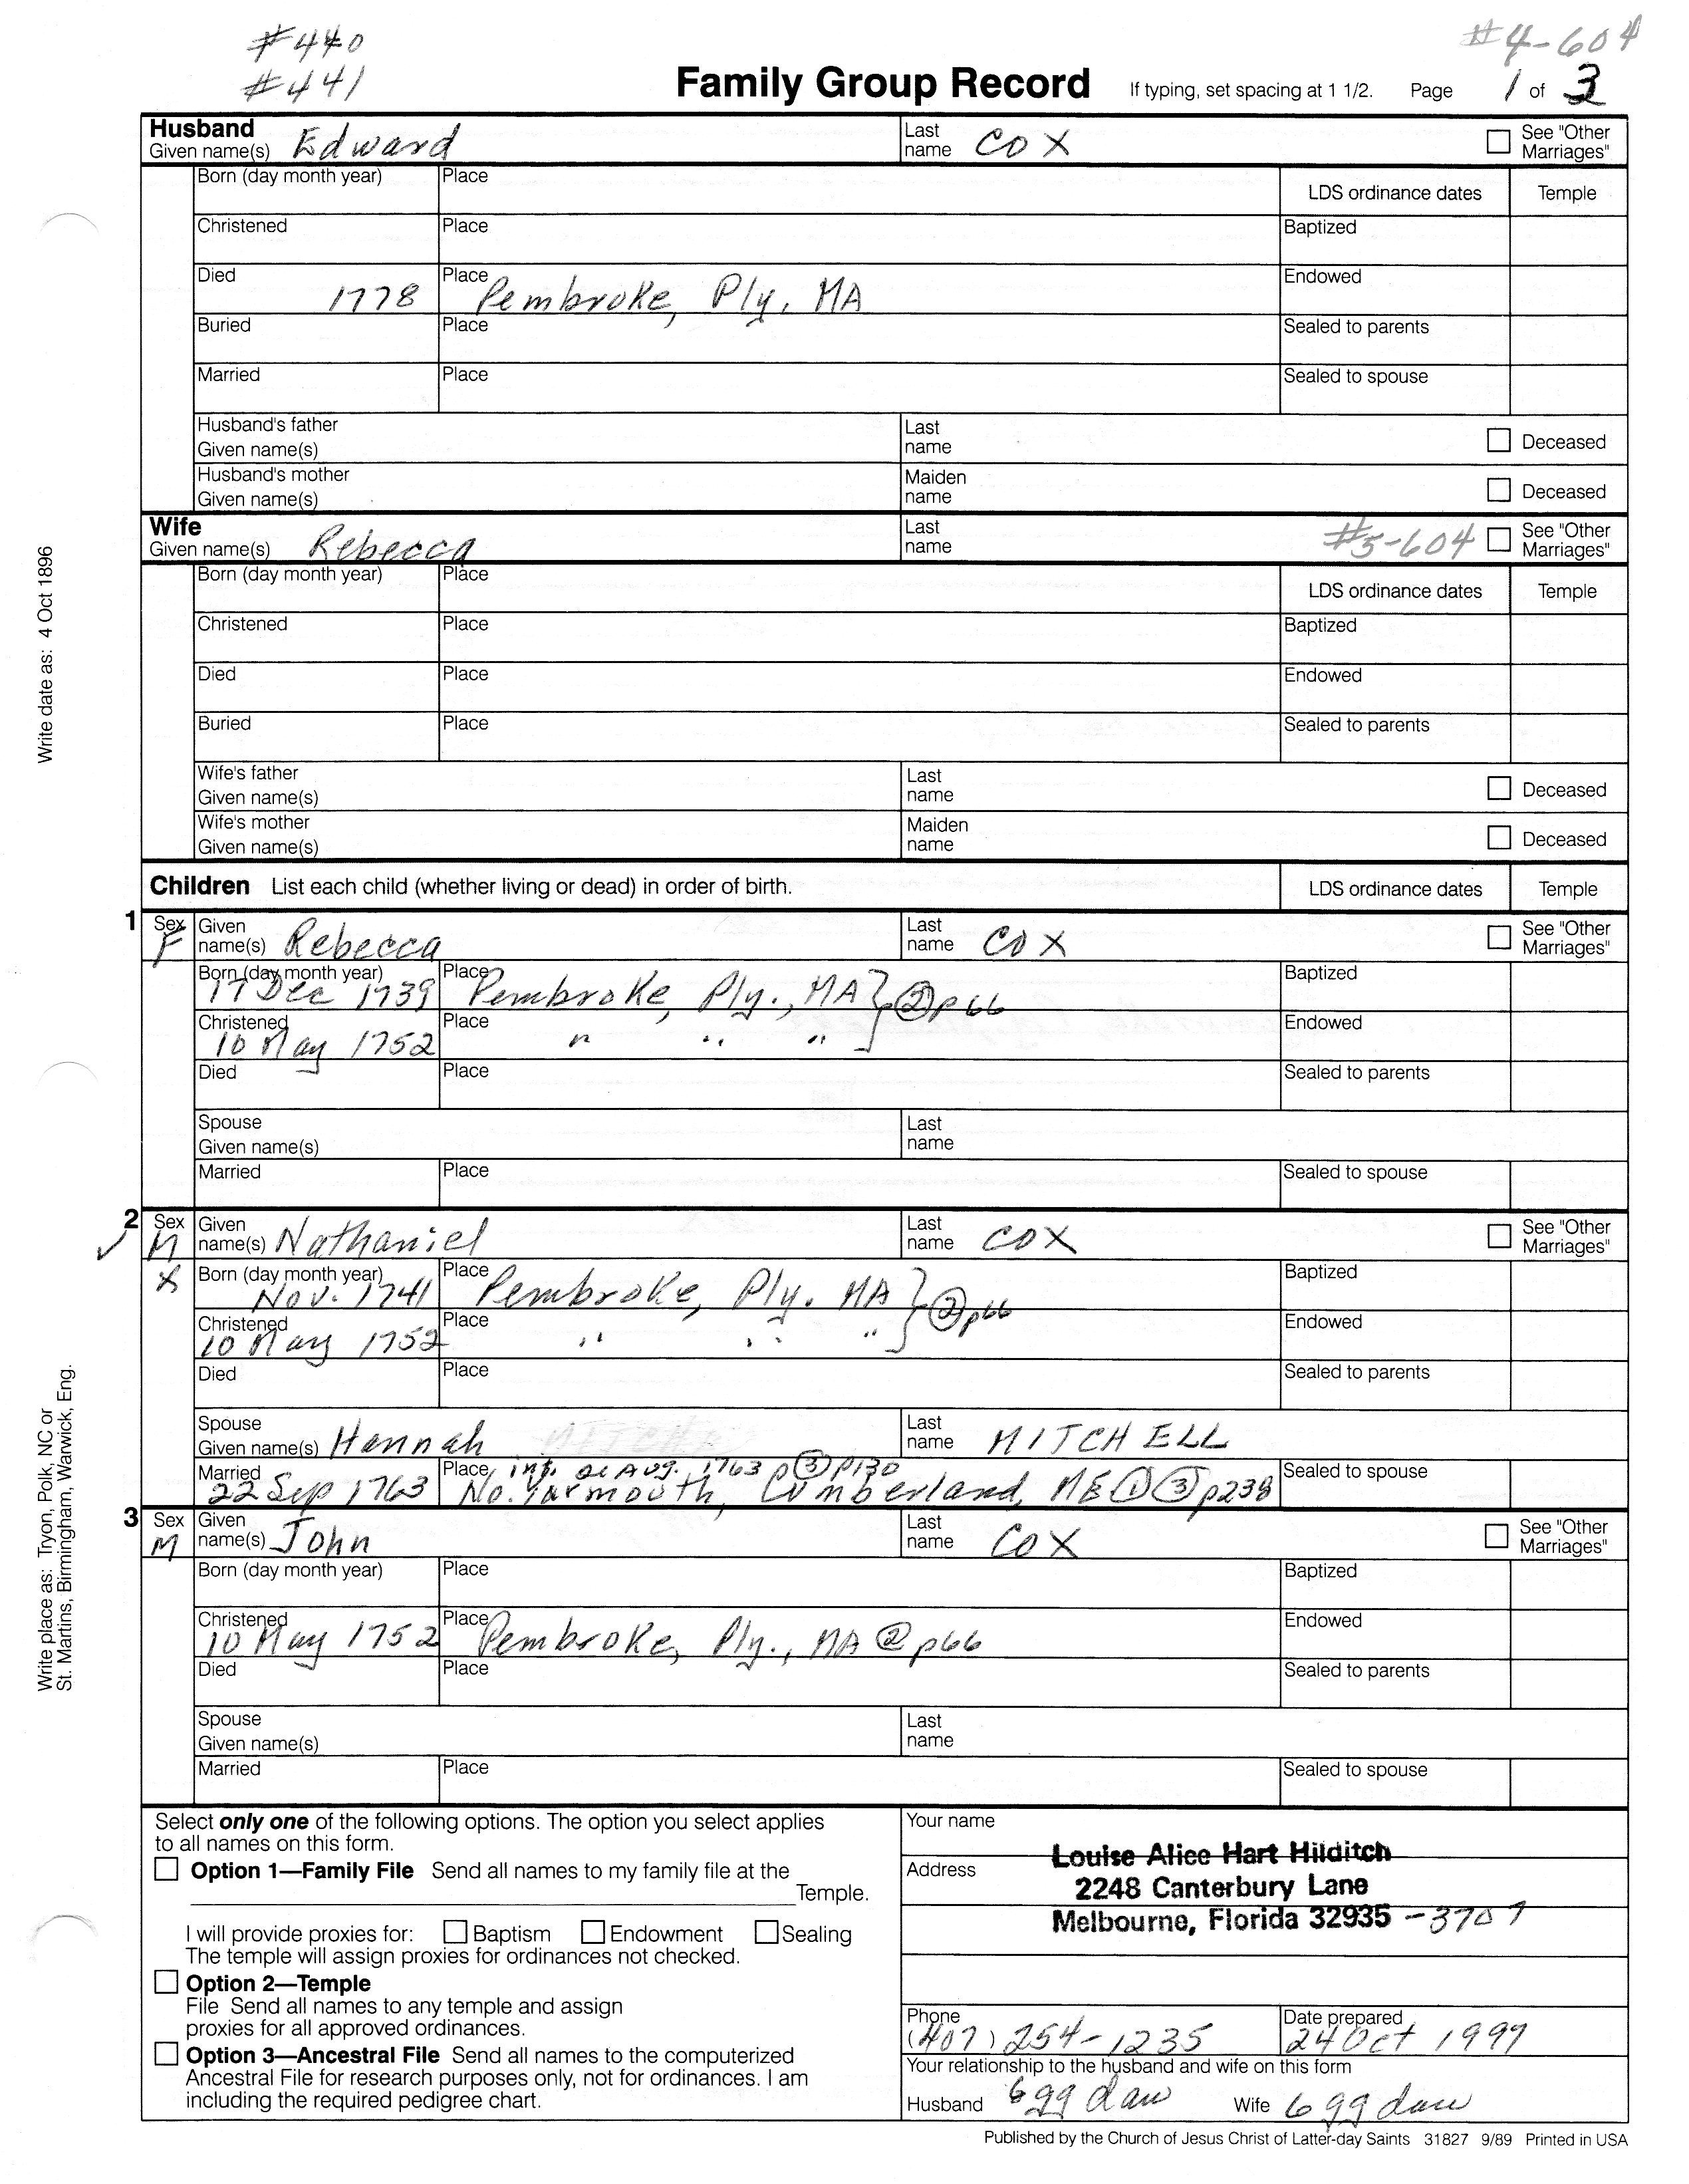 #440
#441
#4-604
Family Group Record If typing, set spacing at 1 1/2. Page 1 of 3
Husband
Given name(s) Edward Last name COX See "Other Marriages"
Born (day month year) Place LDS ordinance dates Temple
Christened Place Baptized
Died 1778 Place Pembroke, Ply, MA Endowed
Buried Place Sealed to parents
Married Place Sealed to spouse
Husband's father
Given name(s) Last name Deceased
Husband's mother
Given name(s) Maiden name Deceased
Wife
Given name(s) Rebecca Last name #5-604 See "Other Marriages"
Born (day month year) Place LDS ordinance dates Temple
Christened Place Baptized
Died Place Endowed
Buried Place Sealed to parents
Wife's father
Given name(s) Last name Deceased
Wife's mother
Given name(s) Maiden name Deceased
Children List each child (whether living or dead) in order of birth. LDS ordinance dates Temple
1 Sex F Given name(s) Rebecca Last name COX See "Other Marriages"
Born (day month year) 17 Dec 1739 Place Pembroke, Ply., MA } ② p66 Baptized
Christened 10 May 1752 Place " " " Endowed
Died Place Sealed to parents
Spouse
Given name(s) Last name
Married Place Sealed to spouse
2 ✓ Sex M Given name(s) Nathaniel Last name COX See "Other Marriages"
X Born (day month year) Nov. 1741 Place Pembroke, Ply. MA } ② p66 Baptized
Christened 10 May 1752 Place " " " Endowed
Died Place Sealed to parents
Spouse
Given name(s) Hannah Last name MITCHELL
Married 22 Sep 1763 Place int. Aug. 1763 ③ p130
No. Yarmouth, Cumberland, ME ① ③ p238 Sealed to spouse
3 Sex M Given name(s) John Last name COX See "Other Marriages"
Born (day month year) Place Baptized
Christened 10 May 1752 Place Pembroke, Ply., MA ② p66 Endowed
Died Place Sealed to parents
Spouse
Given name(s) Last name
Married Place Sealed to spouse
Select only one of the following options. The option you select applies
to all names on this form.
Option 1—Family File Send all names to my family file at the
Temple.
I will provide proxies for: Baptism Endowment Sealing
The temple will assign proxies for ordinances not checked.
Option 2—Temple
File Send all names to any temple and assign
proxies for all approved ordinances.
Option 3—Ancestral File Send all names to the computerized
Ancestral File for research purposes only, not for ordinances. I am
including the required pedigree chart.
Your name
Louise Alice Hart Hilditch
Address
2248 Canterbury Lane
Melbourne, Florida 32935 -3707
Phone (407) 254-1235 Date prepared 24 Oct 1997
Your relationship to the husband and wife on this form
Husband 6 gg dau Wife 6 gg dau
Published by the Church of Jesus Christ of Latter-day Saints 31827 9/89 Printed in USA
Write date as: 4 Oct 1896
Write place as: Tryon, Polk, NC or
St. Martins, Birmingham, Warwick, Eng.